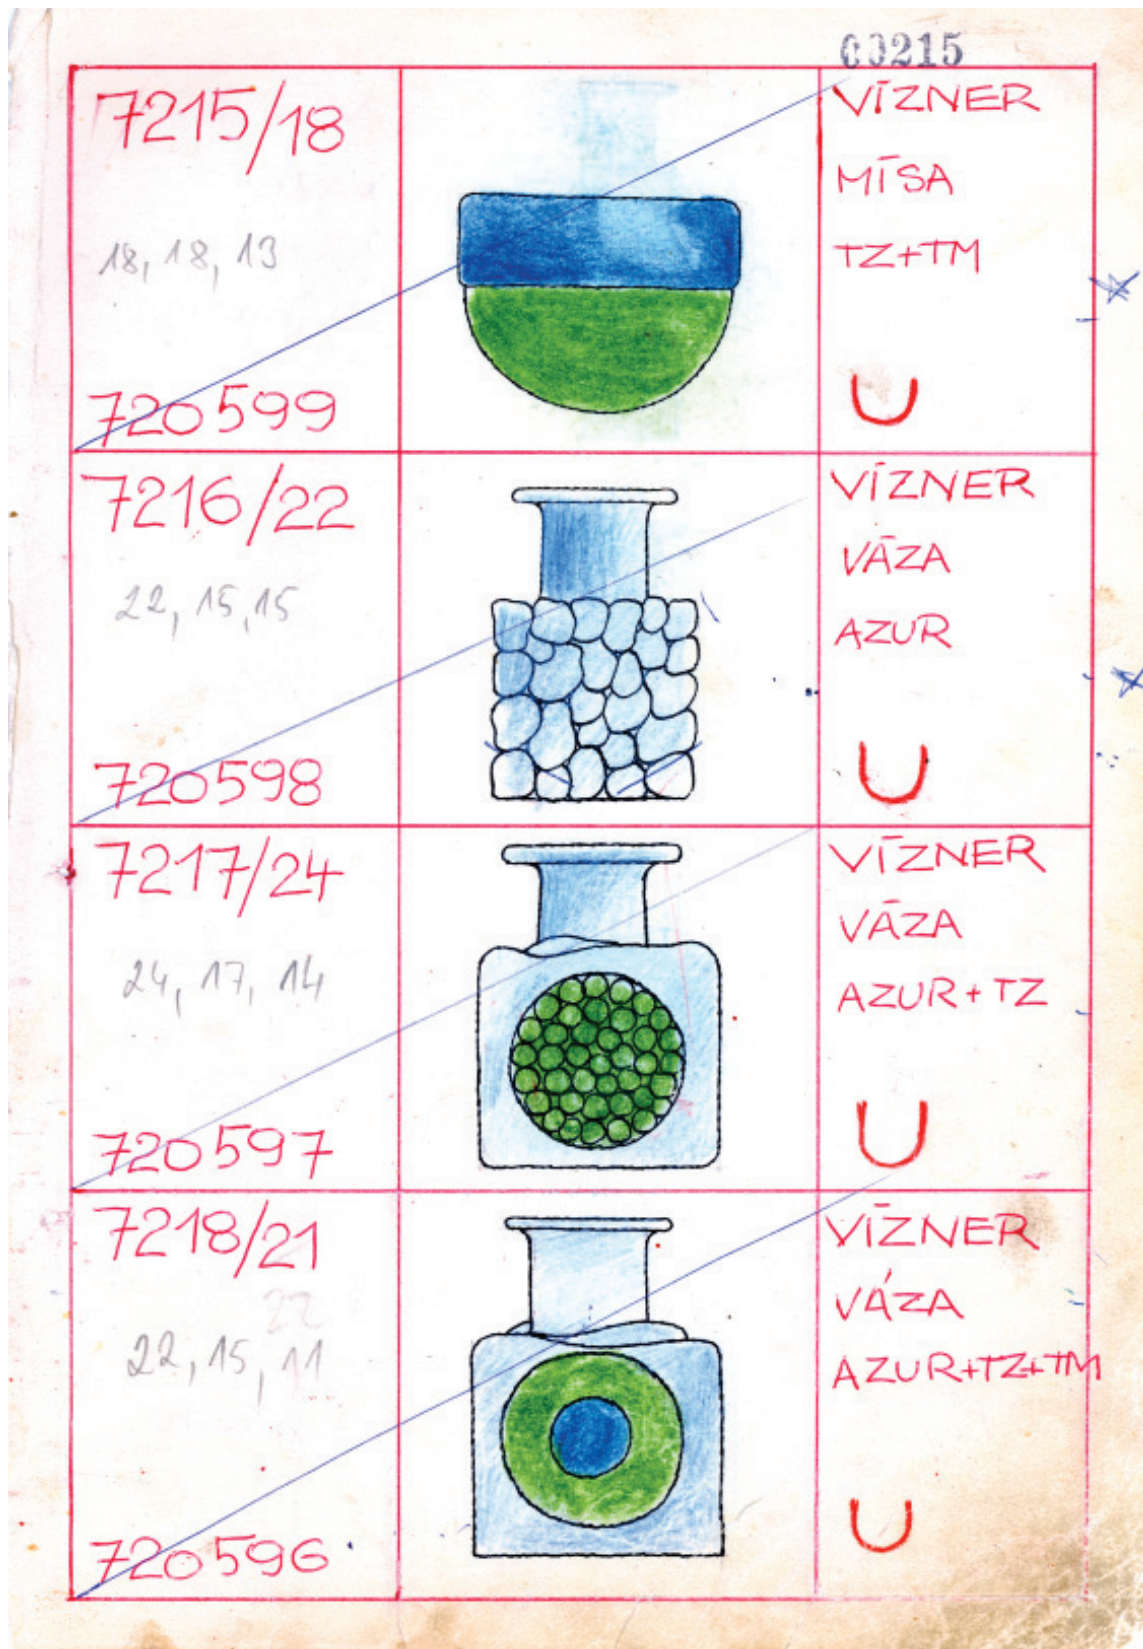 00215
7215/18
18, 18, 13
720599
VÍZNER
MÍSA
TZ+TM
U
7216/22
22, 15, 15
720598
VÍZNER
VÁZA
AZUR
U
7217/24
24, 17, 14
720597
VÍZNER
VÁZA
AZUR+TZ
U
7218/21
22
22, 15, 11
720596
VÍZNER
VÁZA
AZUR+TZ+TM
U